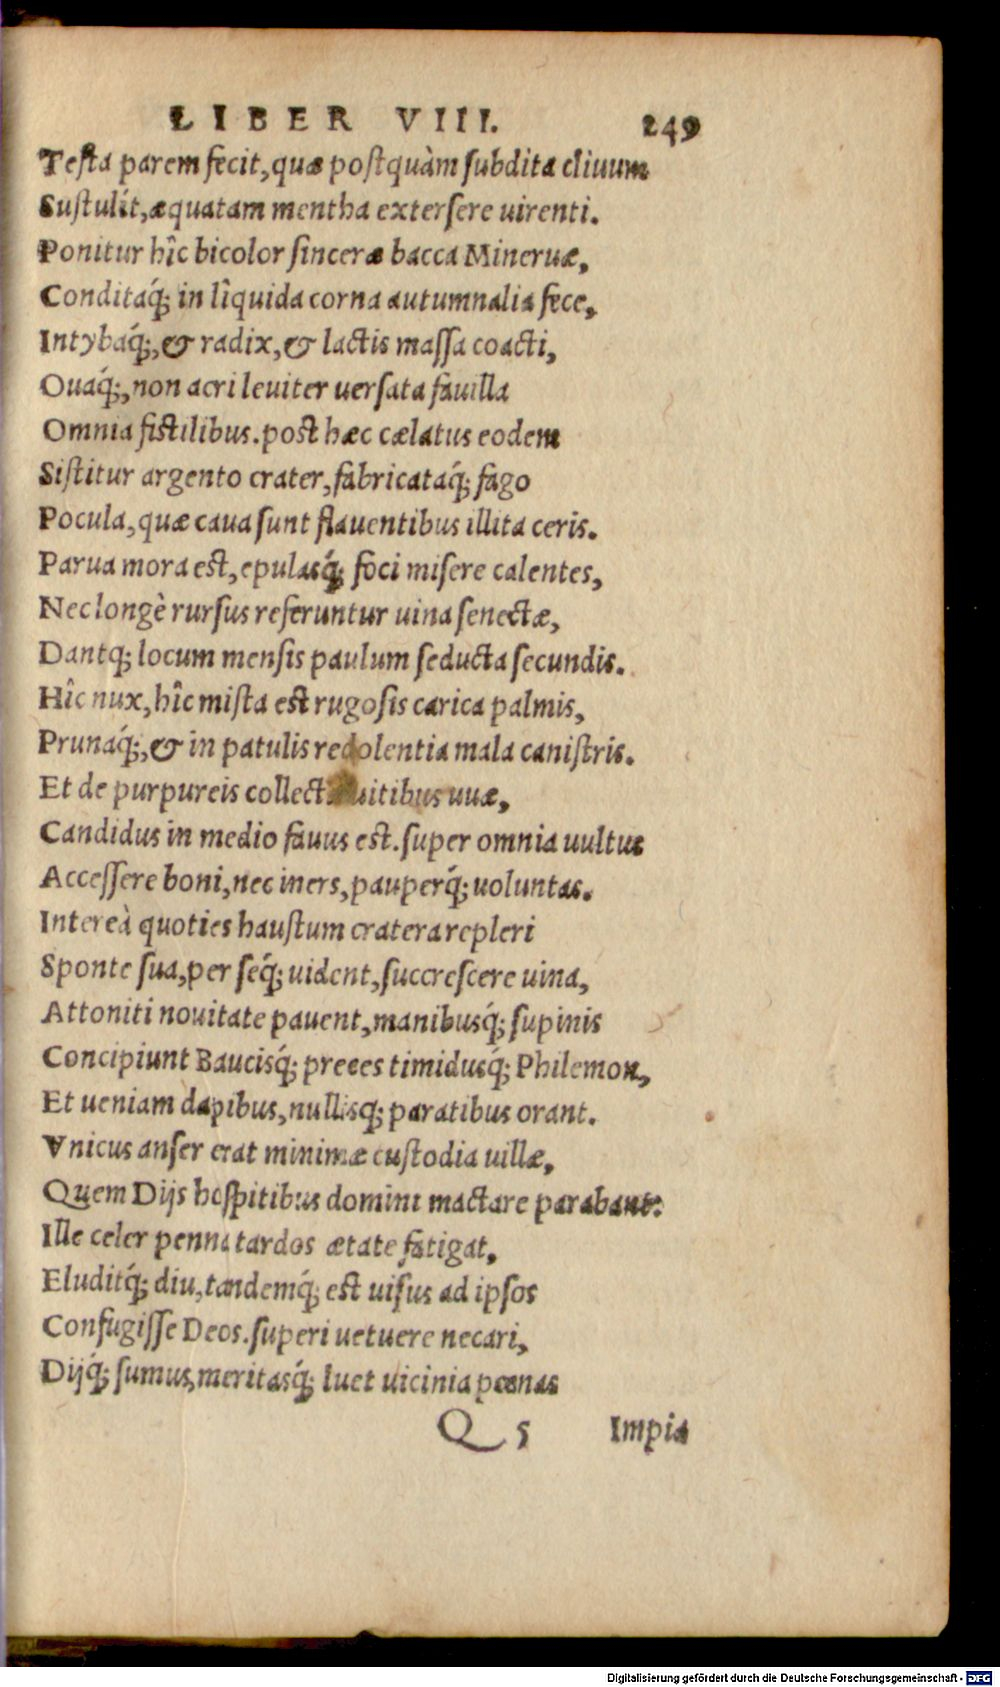 LIBER VIII. 249
Testa parem fecit, quæ postquàm subdita cliuum
Sustulit, æquatam mentha extersere uirenti.
Ponitur hîc bicolor sinceræ bacca Mineruæ,
Conditaq́; in liquida corna autumnalia fece,
Intybaq́;, & radix, & lactis massa coacti,
Ouaq́;, non acri leuiter uersata fauilla
Omnia fictilibus. post hæc cælatus eodem
Sistitur argento crater, fabricataq́; fago
Pocula, quæ caua sunt flauentibus illita ceris.
Parua mora est, epulasq́; foci misere calentes,
Nec longè rursus referuntur uina senectæ,
Dantq; locum mensis paulum seducta secundis.
Hîc nux, hîc mista est rugosis carica palmis,
Prunaq́;, & in patulis redolentia mala canistris.
Et de purpureis collectæ uitibus uuæ,
Candidus in medio fauus est. super omnia uultus
Accessere boni, nec iners, pauperq́; uoluntas.
Intereà quoties haustum cratera repleri
Sponte sua, per seq́; uident, succrescere uina,
Attoniti nouitate pauent, manibusq́; supinis
Concipiunt Baucisq́; preces timidusq́; Philemon,
Et ueniam dapibus, nullisq; paratibus orant.
Vnicus anser erat minimæ custodia uillæ,
Quem Dijs hospitibus domini mactare parabant.
Ille celer penna tardos ætate fatigat,
Eluditq́; diu, tandemq́; est uisus ad ipsos
Confugisse Deos. superi uetuere necari,
Dijq́; sumus, meritasq́; luet uicinia pœnas
Q 5 Impia
Digitalisierung gefördert durch die Deutsche Forschungsgemeinschaft - DFG